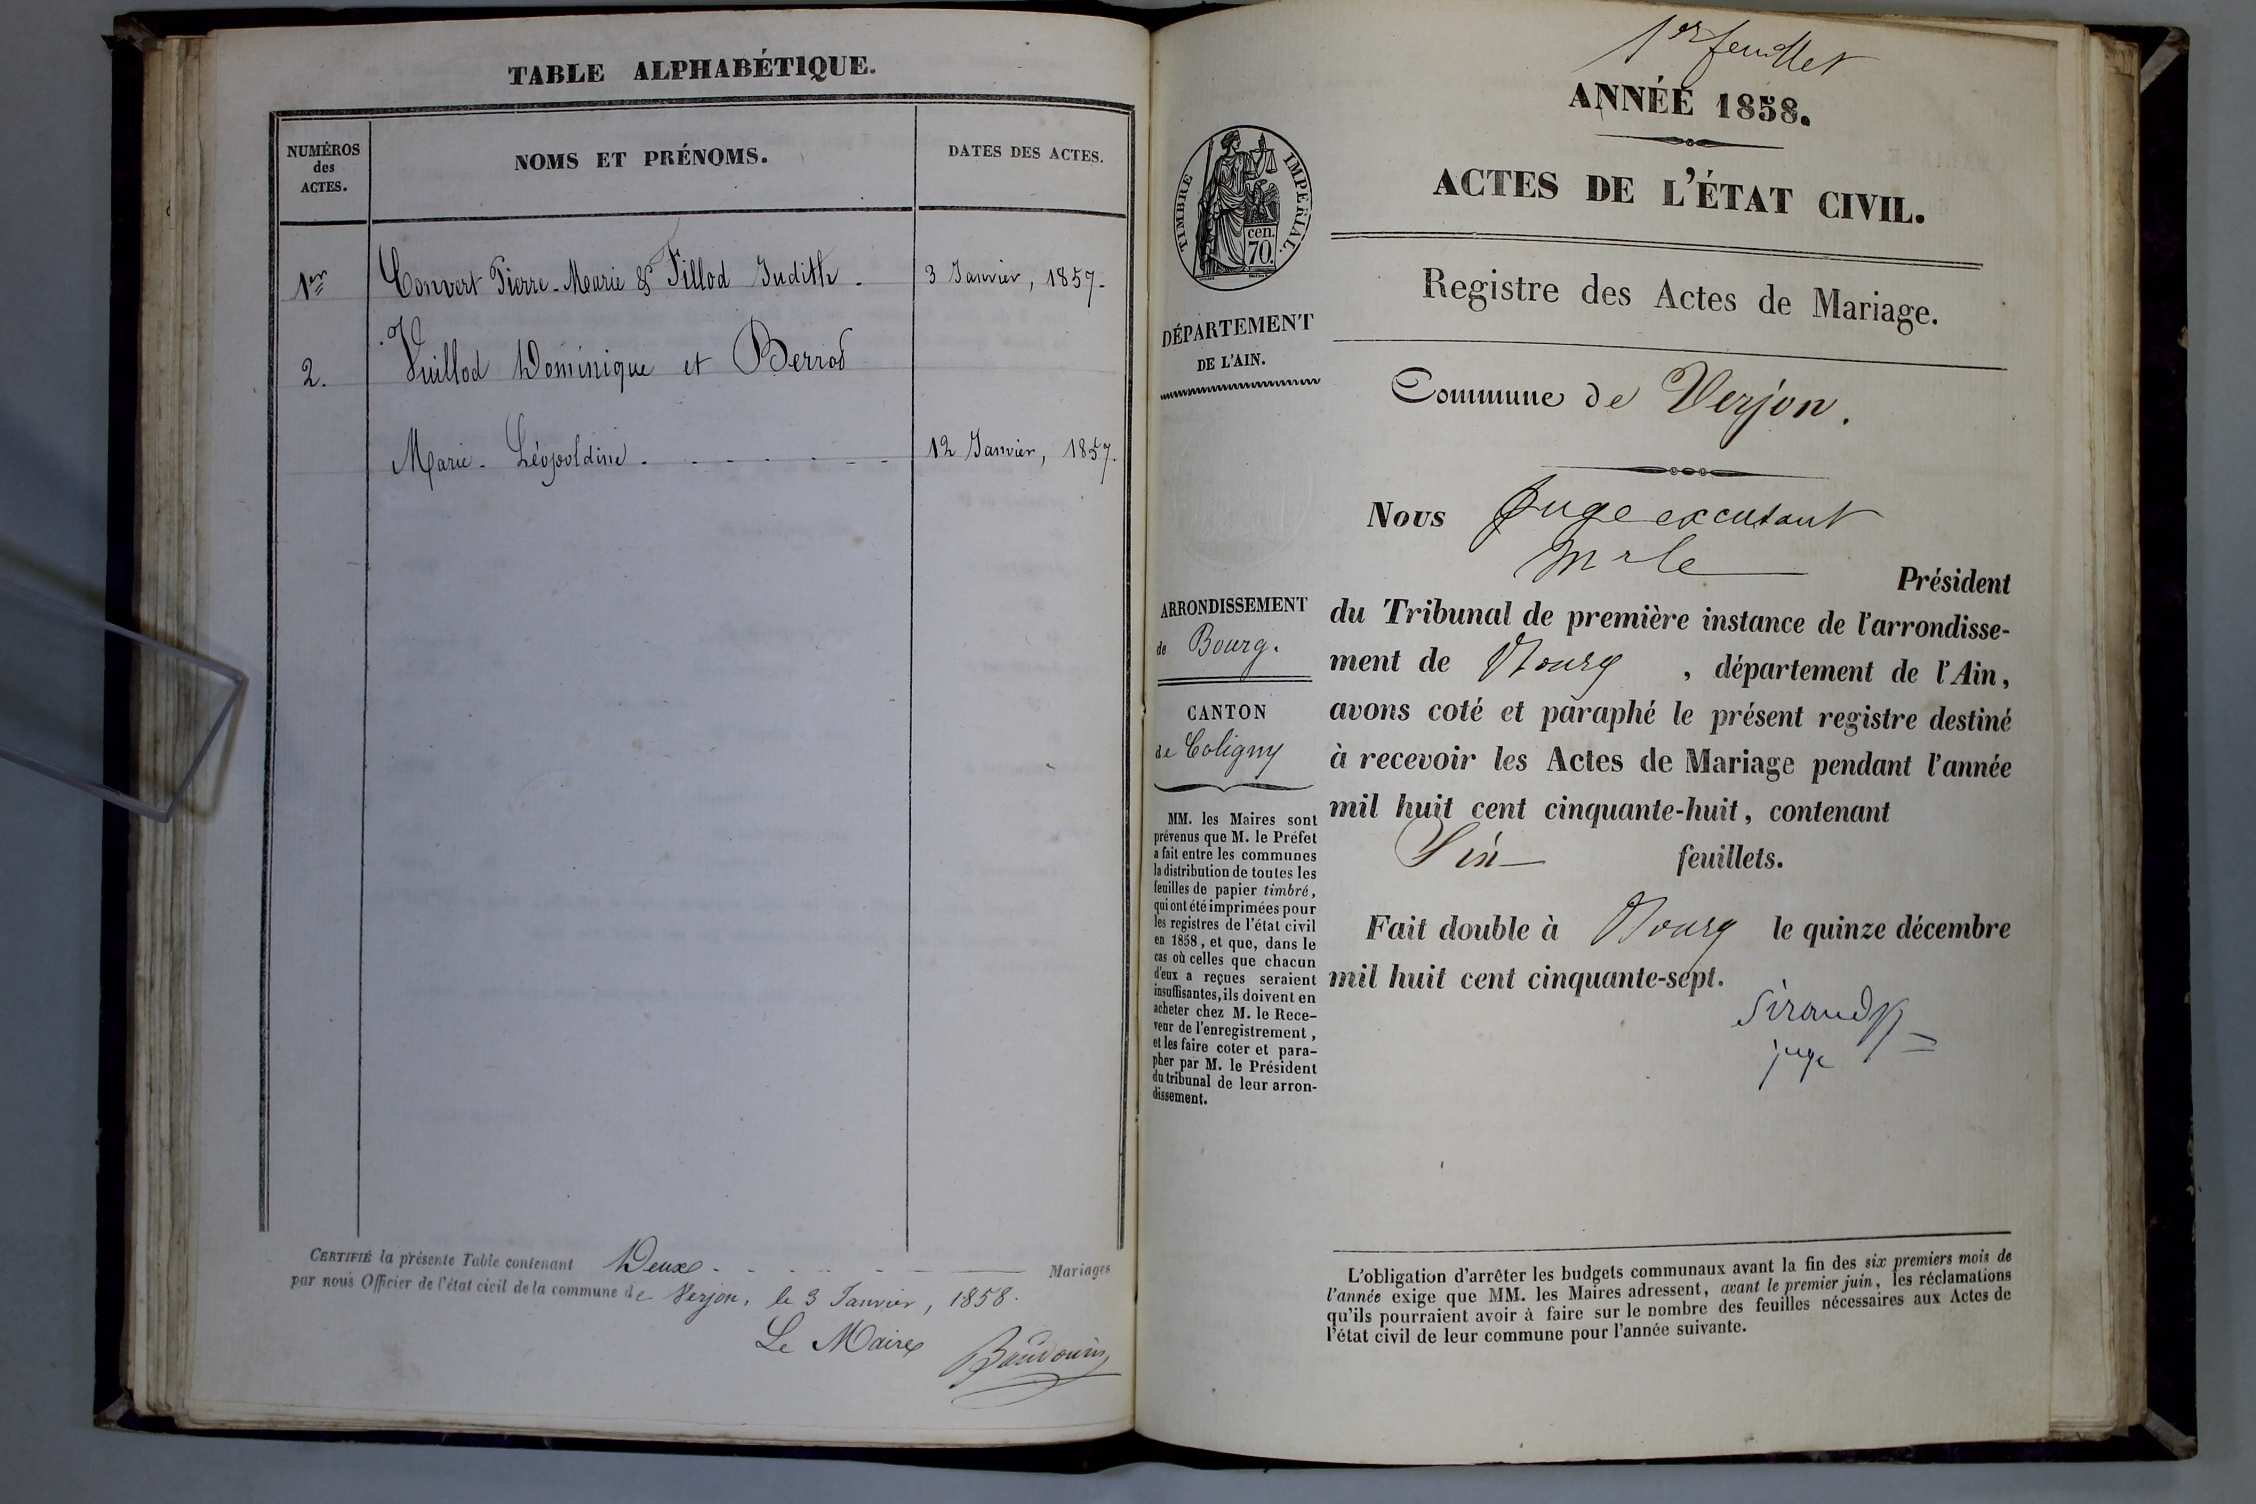 TABLE ALPHABÉTIQUE.
NUMÉROS
des
ACTES.
NOMS ET PRÉNOMS.
DATES DES ACTES.
1er Convert Pierre-Marie & Fillod Judith. 3 Janvier, 1857.
2. Vuillod Dominique et Berrod
Marie-Léopoldine. 12 Janvier, 1857.
CERTIFIÉ la présente Table contenant Deux Mariages
par nous Officier de l'état civil de la commune de Verjon, le 3 Janvier, 1858.
Le Maire
Baudouin
1er feuillet
ANNÉE 1858.
ACTES DE L'ÉTAT CIVIL.
Registre des Actes de Mariage.
Commune de Verjon.
TIMBRE IMPERIAL.
cen.
70.
DÉPARTEMENT
DE L'AIN.
ARRONDISSEMENT
de Bourg.
CANTON
de Coligny
MM. les Maires sont
prévenus que M. le Préfet
a fait entre les communes
la distribution de toutes les
feuilles de papier timbré,
qui ont été imprimées pour
les registres de l'état civil
en 1858, et que, dans le
cas où celles que chacun
d'eux a reçues seraient
insuffisantes, ils doivent en
acheter chez M. le Rece-
veur de l'enregistrement,
et les faire coter et para-
pher par M. le Président
du tribunal de leur arron-
dissement.
Nous Juge excusant
Mr le
Président
du Tribunal de première instance de l'arrondisse-
ment de Bourg, département de l'Ain,
avons coté et paraphé le présent registre destiné
à recevoir les Actes de Mariage pendant l'année
mil huit cent cinquante-huit, contenant
Six feuillets.
Fait double à Bourg le quinze décembre
mil huit cent cinquante-sept.
Sirand
juge
L'obligation d'arrêter les budgets communaux avant la fin des six premiers mois de
l'année exige que MM. les Maires adressent, avant le premier juin, les réclamations
qu'ils pourraient avoir à faire sur le nombre des feuilles nécessaires aux Actes de
l'état civil de leur commune pour l'année suivante.